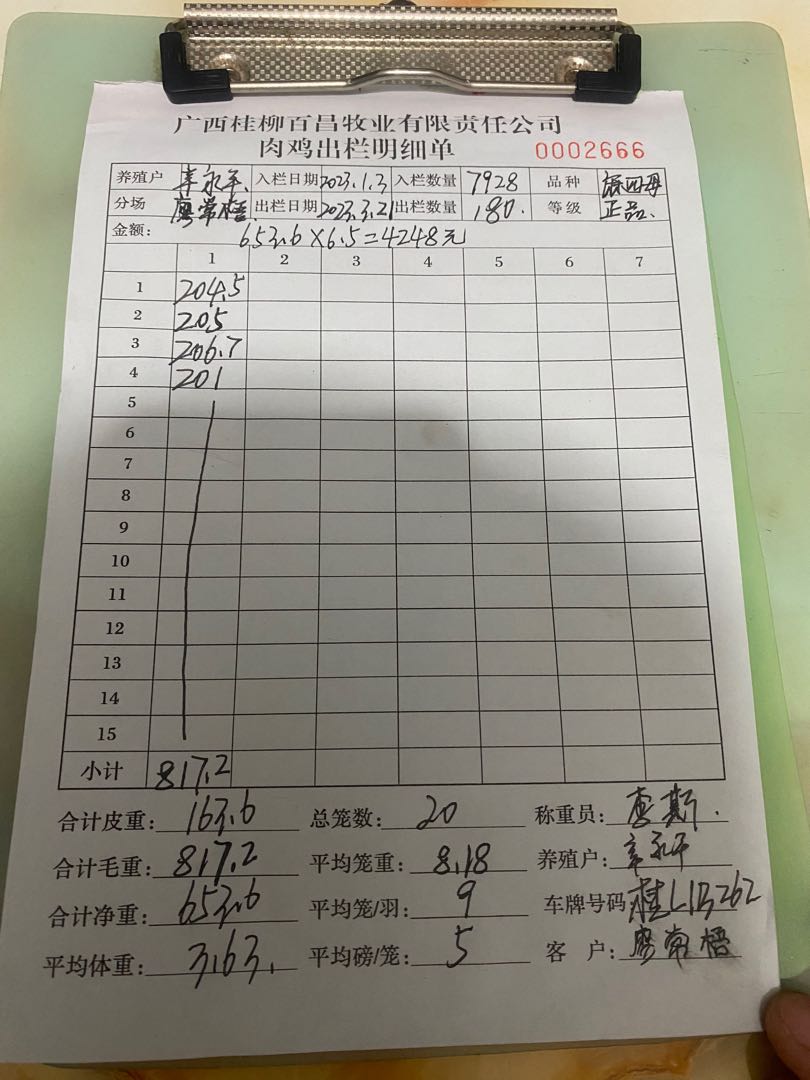 广西桂柳百昌牧业有限责任公司
肉鸡出栏明细单 0002666
养殖户 辛永平. 入栏日期 2023.1.3 入栏数量 7928 品种
分场 廖常梧. 出栏日期 2023.3.21 出栏数量 180. 等级 正品.
金额: 653.6×6.5=4248元
1 2 3 4 5 6 7
1 204.5
2 205
3 206.7
4 201
5
6
7
8
9
10
11
12
13
14
15
小计 817.2
合计皮重: 163.6 总笼数: 20 称重员: 唐斯.
合计毛重: 817.2 平均笼重: 8.18 养殖户: 辛永平
合计净重: 653.6 平均笼/羽: 9 车牌号码: 桂L1B262
平均体重: 3.63. 平均磅/笼: 5 客 户: 廖常梧